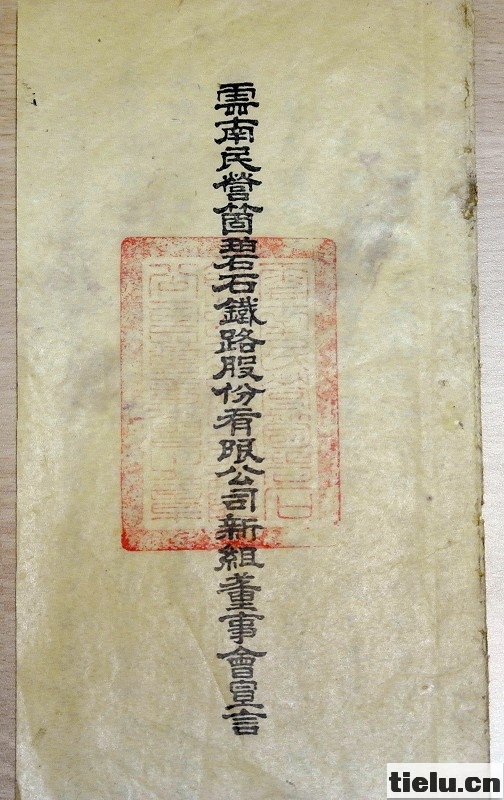 雲南民營箇碧石鐵路股份有限公司新組董事會宣言
tielu.cn